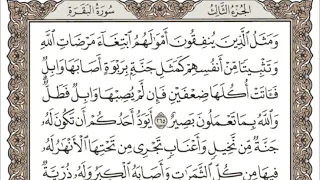 الجزء الثالث سورة البقرة
وَمَثَلُ الَّذِينَ يُنفِقُونَ أَمْوَالَهُمُ ابْتِغَاءَ مَرْضَاتِ اللَّهِ
وَتَثْبِيتًا مِّنْ أَنفُسِهِمْ كَمَثَلِ جَنَّةٍ بِرَبْوَةٍ أَصَابَهَا وَابِلٌ
فَـَٔاتَتْ أُكُلَهَا ضِعْفَيْنِ فَإِن لَّمْ يُصِبْهَا وَابِلٌ فَطَلٌّ
وَاللَّهُ بِمَا تَعْمَلُونَ بَصِيرٌ ٢٦٥ أَيَوَدُّ أَحَدُكُمْ أَن تَكُونَ لَهُ
جَنَّةٌ مِّن نَّخِيلٍ وَأَعْنَابٍ تَجْرِي مِن تَحْتِهَا الْأَنْهَارُ لَهُ
فِيهَا مِن كُلِّ الثَّمَرَاتِ وَأَصَابَهُ الْكِبَرُ وَلَهُ ذُرِّيَّةٌ